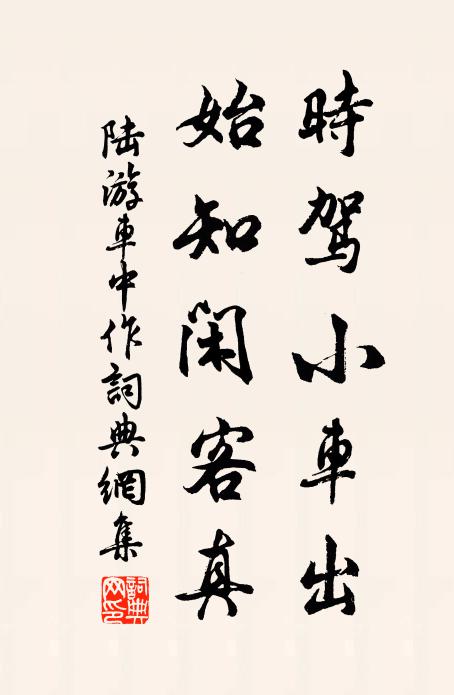 時駕小車出
始知閑客真
陸游車中作詞典網集
詞典網印